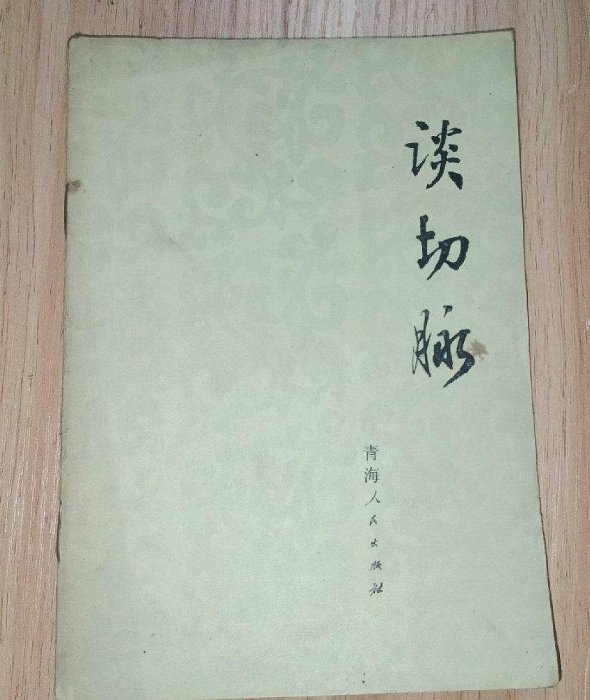 谈切脉
青海人民出版社